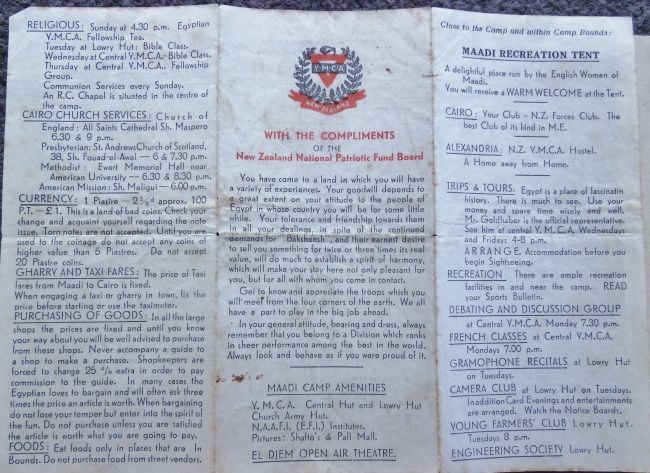 RELIGIOUS: Sunday at 4.30 p.m. Egyptian
Y.M.C.A. Fellowship Tea.
Tuesday at Lowry Hut: Bible Class.
Wednesday at Central Y.M.C.A.- Bible Class.
Thursday at Central Y.M.C.A.. Fellowship
Group.
Communion Services every Sunday.
An R.C. Chapel is situated in the centre of
the camp.
CAIRO CHURCH SERVICES: Church of
England: All Saints Cathedral Sh. Maspero
6.30 & 9 p.m.
Presbyterian: St. Andrews Church of Scotland,
38, Sh. Fouad-el-Awal — 6 & 7.30 p.m.
Methodist: Ewart Memorial Hall near
American University. — 6.30 & 8.30 p.m.
American Mission: Sh. Meligui — 6.00 p.m.
CURRENCY: 1 Piastre — 2½d approx. 100
P.T. — £1. This is a land of bad coins. Check your
change and acquaint yourself regarding the note
issue. Torn notes are not accepted. Until you are
used to the coinage do not accept any coins of
higher value than 5 Piastres. Do not accept
20 Piastre coins.
GHARRY AND TAXI FARES: The price of Taxi
fares from Maadi to Cairo is fixed.
When engaging a taxi or gharry in town, fix the
price before starting or use the taximeter.
PURCHASING OF GOODS: In all the large
shops the prices are fixed and until you know
your way about you will be well advised to purchase
from these shops. Never accompany a guide to
a shop to make a purchase. Shopkeepers are
forced to charge 25 % extra in order to pay
commission to the guide. In many cases the
Egyptian loves to bargain and will often ask three
times the price an article is worth. When bargaining
do not lose your temper but enter into the spirit of
the fun. Do not purchase unless you are satisfied
the article is worth what you are going to pay.
FOODS: Eat foods only in places that are In
Bounds. Do not purchase food from street vendors.
Y.M.C.A
NEW ZEALAND
WITH THE COMPLIMENTS
OF THE
New Zealand National Patriotic Fund Board
You have come to a land in which you will have
a variety of experiences. Your goodwill depends to
a great extent on your attitude to the people of
Egypt in whose country you will be for some little
while. Your tolerance and friendship towards them
in all your dealings, in spite of the continued
demands for "Baksheesh", and their earnest desire
to sell you something for twice or three times its real
value, will do much to establish a spirit of harmony,
which will make your stay here not only pleasant for
you, but for all with whom you come in contact.
Get to know and appreciate the troops which you
will meet from the four corners of the earth. We all
have a part to play in the big job ahead.
In your general attitude, bearing and dress, always
remember that you belong to a Division which ranks
in sheer performance among the best in the world.
Always look and behave as if you were proud of it.
MAADI CAMP AMENITIES
Y.M.C.A. Central Hut and Lowry Hut
Church Army Hut.
N.A.A.F.I. (E.F.I.) Institutes.
Pictures: Shafto's & Pall Mall.
EL DJEM OPEN AIR THEATRE.
Close to the Camp and within Camp Bounds:
MAADI RECREATION TENT
A delightful place run by the English Women of
Maadi.
You will receive a WARM WELCOME at the Tent.
CAIRO: Your Club - N.Z. Forces Club. The
best Club of its kind in M.E.
ALEXANDRIA: N.Z. Y.M.C.A. Hostel.
A Home away from Home.
TRIPS & TOURS. Egypt is a place of fascinating
history. There is much to see. Use your
money and spare time wisely and well.
Mr. Goldhaber is the official representative.
See him at central Y.M.C.A. Wednesdays
and Fridays 4-8 p.m.
ARRANGE. Accommodation before you
begin Sightseeing.
RECREATION: There are ample recreation
facilities in and near the camp. READ
your Sports Bulletin.
DEBATING AND DISCUSSION GROUP
at Central Y.M.C.A. Monday 7.30 p.m.
FRENCH CLASSES at Central Y.M.C.A.
Mondays 7.00 p.m.
GRAMOPHONE RECITALS at Lowry Hut
on Tuesdays.
CAMERA CLUB at Lowry Hut on Tuesdays.
In addition Card Evenings and entertainments
are arranged. Watch the Notice Boards.
YOUNG FARMERS' CLUB Lowry Hut.
Tuesdays 8 p.m.
ENGINEERING SOCIETY Lowry Hut.